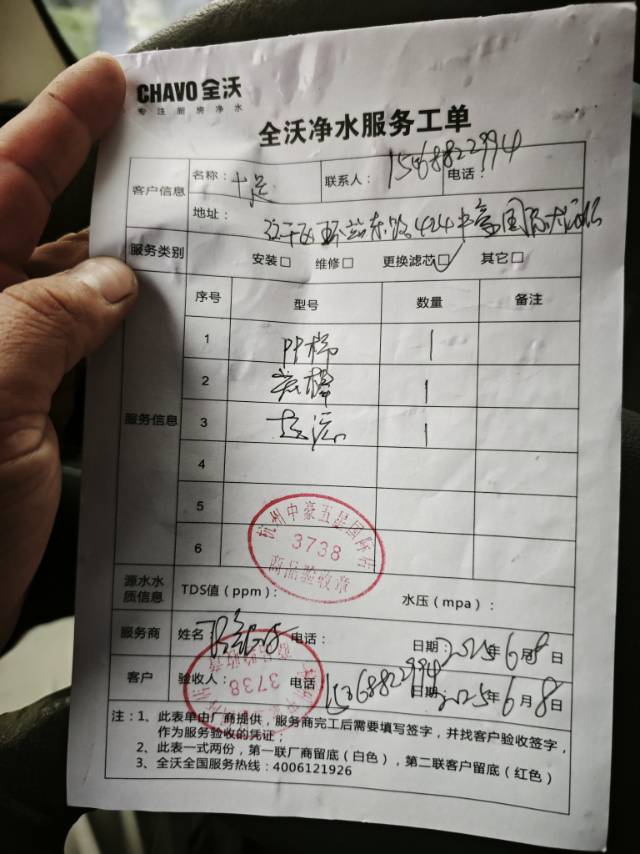 CHAVO 全沃
专注厨房净水
全沃净水服务工单
客户信息 名称：十足 联系人： 电话：
地址：江干区环站东路424中豪国际大酒店
服务类别 安装□ 维修□ 更换滤芯☑ 其它□
服务信息 序号 型号 数量 备注
1 PP棉 1
2 炭棒 1
3 超滤 1
4
5
6
杭州中豪五星国际店
3738
商品验收章
源水水质信息 TDS值（ppm）： 水压（mpa）：
服务商 姓名 电话： 日期：2025年6月8日
客户 验收人： 电话 15368822994 日期：2025年6月8日
3738
注：1、此表单由厂商提供，服务商完工后需要填写签字，并找客户验收签字，
作为服务验收的凭证
2、此表一式两份，第一联厂商留底（白色），第二联客户留底（红色）
3、全沃全国服务热线：4006121926